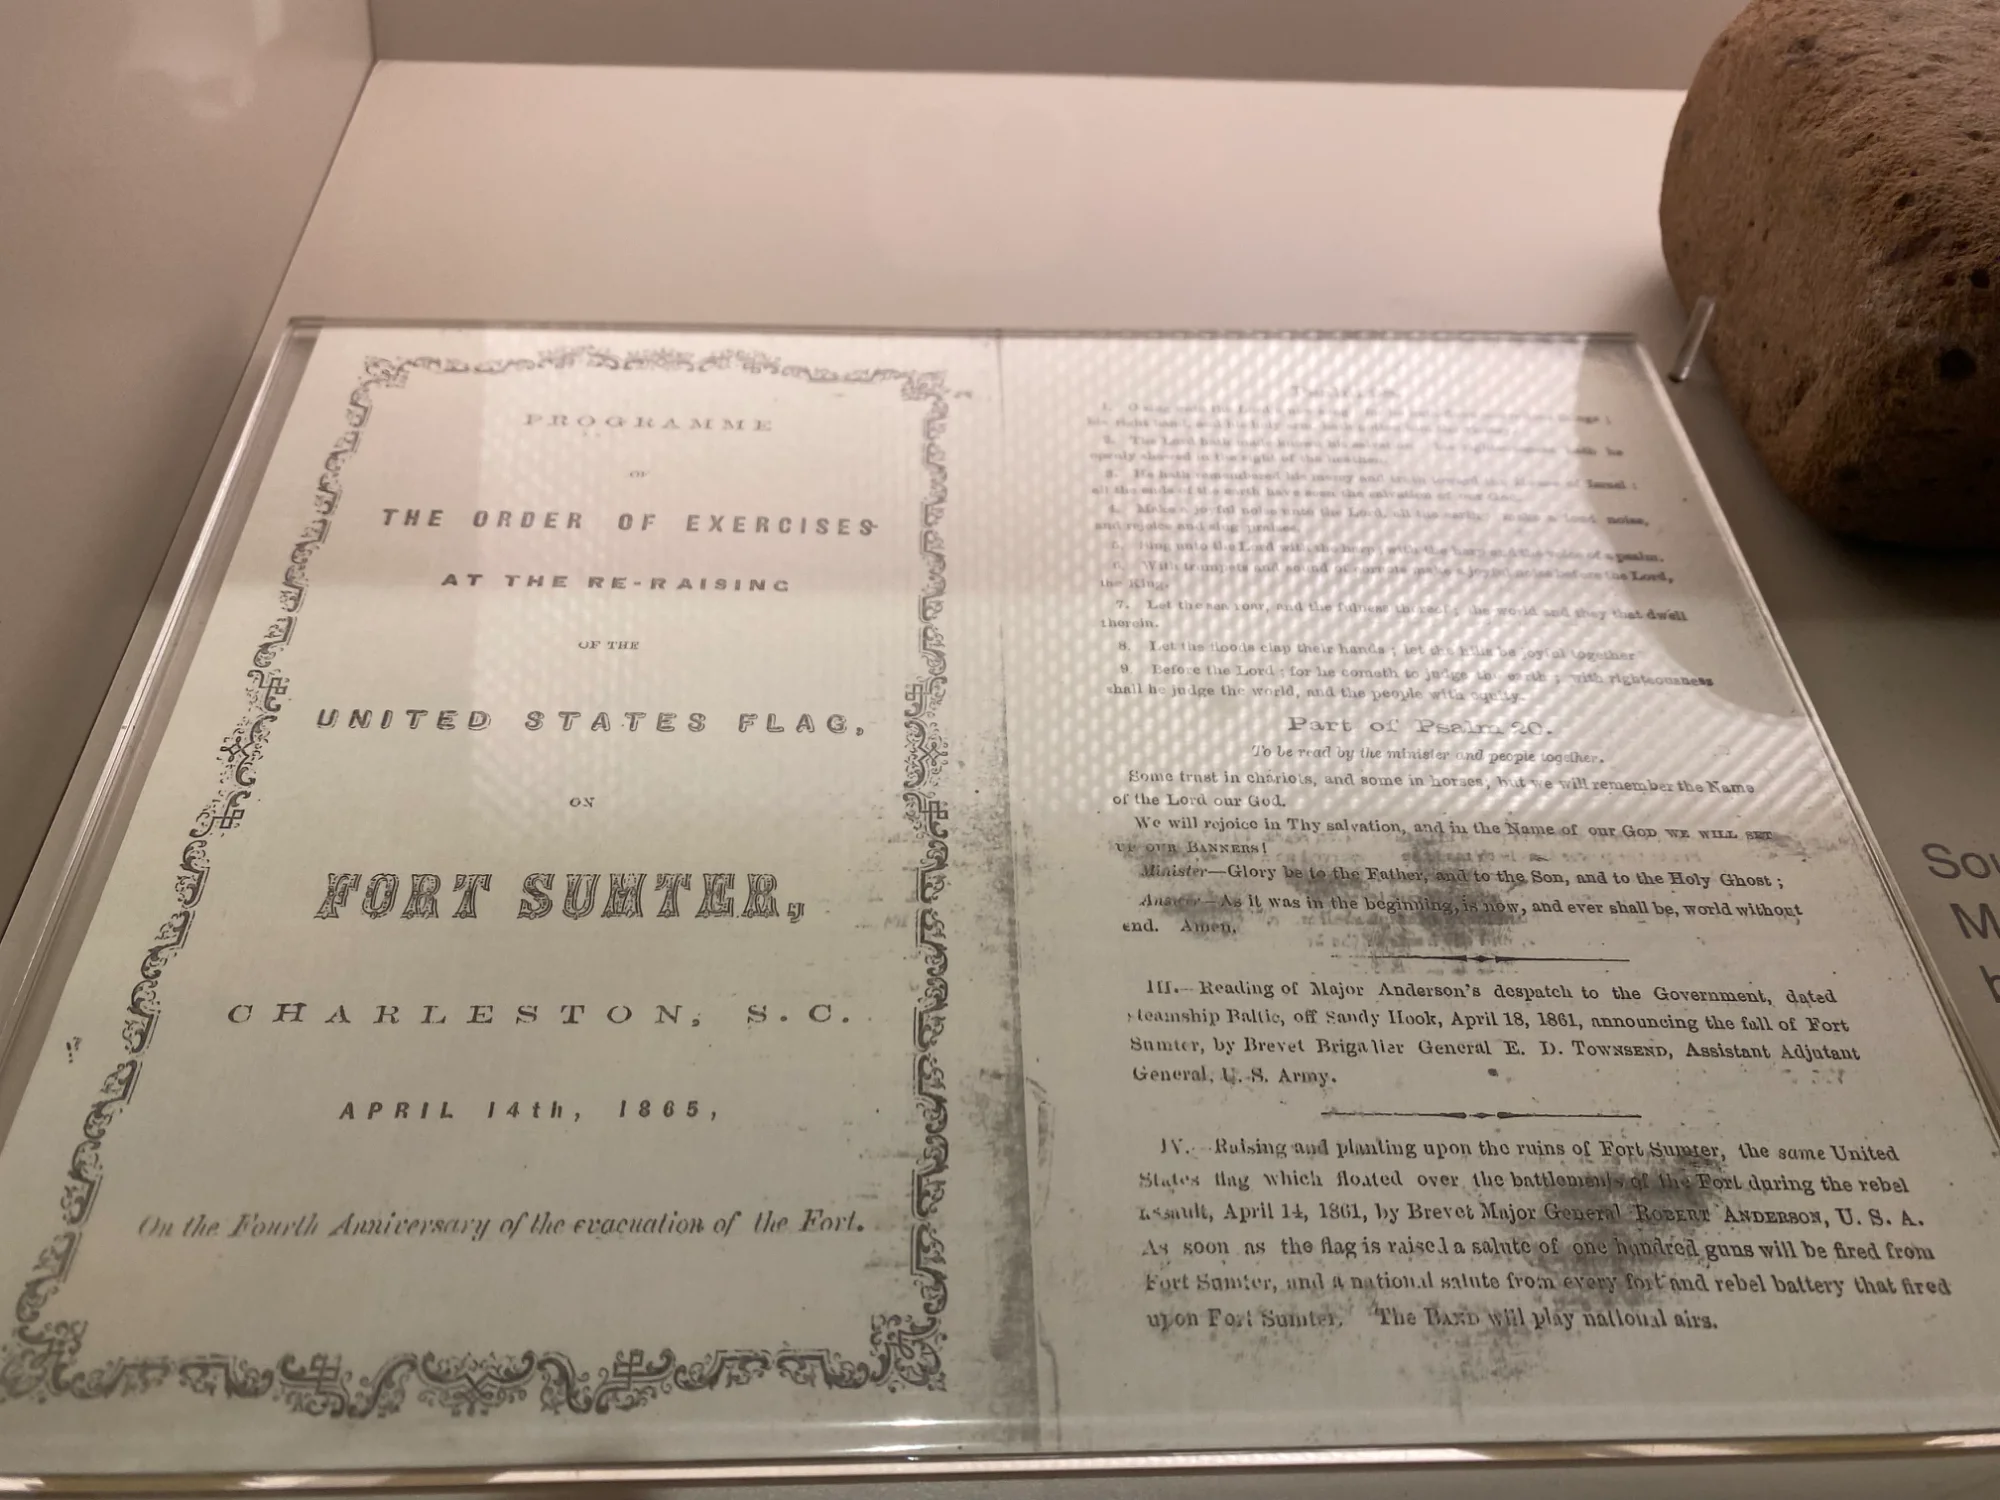 PROGRAMME
OF
THE ORDER OF EXERCISES
AT THE RE-RAISING
OF THE
UNITED STATES FLAG,
ON
FORT SUMTER,
CHARLESTON, S.C.
APRIL 14th, 1865,
On the Fourth Anniversary of the evacuation of the Fort.
his right hand, and his holy arm,
2. The Lord hath made known his
openly shewed in the sight of the heathen.
3. He hath remembered his mercy and truth toward the house of Israel :
all the ends of the earth have seen the salvation of our God.
4. Make a joyful noise unto the Lord, all the earth: make a loud noise,
and rejoice and sing praises.
5. Sing unto the Lord with the harp; with the harp and the voice of a psalm.
6. With trumpets and sound of cornets make a joyful noise before the Lord,
the King.
7. Let the sea roar, and the fulness thereof; the world and they that dwell
therein.
8. Let the floods clap their hands; let the hills be joyful together
9. Before the Lord; for he cometh to judge the earth; with righteousness
shall he judge the world, and the people with equity.
Part of Psalm 20.
To be read by the minister and people together.
Some trust in chariots, and some in horses; but we will remember the Name
of the Lord our God.
We will rejoice in Thy salvation, and in the Name of our GOD WE WILL SET
UP OUR BANNERS!
Minister—Glory be to the Father, and to the Son, and to the Holy Ghost;
Answer—As it was in the beginning, is now, and ever shall be, world without
end. Amen.
III.—Reading of Major Anderson's despatch to the Government, dated
steamship Baltic, off Sandy Hook, April 18, 1861, announcing the fall of Fort
Sumter, by Brevet Brigadier General E. D. TOWNSEND, Assistant Adjutant
General, U. S. Army.
IV.—Raising and planting upon the ruins of Fort Sumter, the same United
States flag which floated over the battlements of the Fort during the rebel
assault, April 14, 1861, by Brevet Major General ROBERT ANDERSON, U. S. A.
As soon as the flag is raised a salute of one hundred guns will be fired from
Fort Sumter, and a national salute from every fort and rebel battery that fired
upon Fort Sumter. The BAND will play national airs.